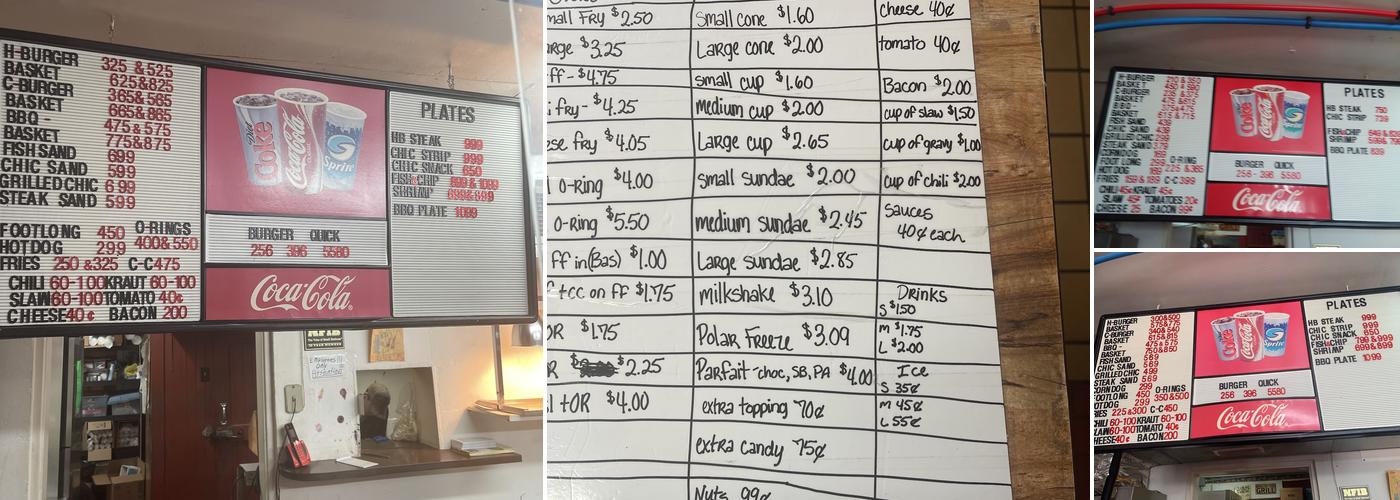 H-BURGER 325 &525
BASKET 625&825
C-BURGER 365& 565
BASKET 665&865
BBQ - 475 & 575
BASKET 775&875
FISH SAND 699
CHIC SAND 599
GRILLED CHIC 6 99
STEAK SAND 599
FOOTLONG 450 O-RINGS
HOTDOG 299 400&550
FRIES 250 &325 C-C475
CHILI 60-100KRAUT 60-100
SLAW60-100TOMATO 40¢
CHEESE40 ¢ BACON 200
Diet Coke
Coca-Cola
Sprite
BURGER QUICK
256 396 5580
Coca-Cola
PLATES
HB STEAK 999
CHIC STRIP 999
CHIC SNACK 650
FISH&CHIP 899 & 1099
SHRIMP 699&899
BBQ PLATE 1099
NFIB
Employees!!!
Only
Attention
mall Fry $2.50
arge $3.25
ff- $4.75
i fry- $4.25
ese fry $4.05
l O-Ring $4.00
O-ring $5.50
ff in(Bas) $1.00
tcc on ff $1.75
OR $1.75
R $2.25
l tOR $4.00
Small cone $1.60
Large cone $2.00
small cup $1.60
medium cup $2.00
Large cup $2.65
small sundae $2.00
medium sundae $2.45
Large sundae $2.85
milkshake $3.10
Polar Freeze $3.09
Parfait -choc, SB, PA $4.00
extra topping 70¢
extra candy 75¢
Nuts 99¢
cheese 40¢
tomato 40¢
Bacon $2.00
cup of slaw $1.50
cup of gravy $1.00
cup of chili $2.00
sauces
40¢ each
Drinks
S $1.50
M $1.75
L $2.00
Ice
S 35¢
M 45¢
L 55¢
H-BURGER 210 & 350
BASKET 450 & 590
C-BURGER 235 & 375
BASKET 475 &615
BBQ - 375&475
BASKET 615 & 715
FISH SAND 439
CHIC SAND 439
GRILLED CHIC 299
STEAK SAND 379
FOOT LONG O-RING
HOT DOG 225 &365
FRIES 159 &189 C-C399
CHILI 45¢KRAUT 45¢
SLAW 45¢ TOMATOES 20¢
CHEESE 25 BACON 99¢
Coke
Coca-Cola
Sprite
BURGER QUICK
256 - 396 5580
Coca-Cola
PLATES
HB STEAK 750
CHIC STRIP 739
FISH&CHIP
SHRIMP
BBQ PLATE 839
H-BURGER 300&500
BASKET 575&775
C-BURGER 340&540
BASKET 615&815
BBQ - 450&550
BASKET 750&850
FISH SAND 589
CHIC SAND 589
GRILLED CHIC 569
STEAK SAND 569
CORNDOG 299 O-RINGS
FOOTLONG 450 350&500
HOTDOG 299
RIES 225&300 C-C450
CHILI 60-100KRAUT 60-100
LAW60-100TOMATO 40¢
HEESE40¢ BACON200
Diet Coke
Coca-Cola
Sprite
BURGER QUICK
256 396 5580
Coca-Cola
PLATES
HB STEAK 999
CHIC STRIP 999
CHIC SNACK 650
FISH&CHIP 799&999
SHRIMP 699&899
BBQ PLATE 1099
GRILL
NFIB